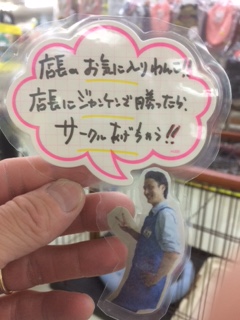 店長の お気に入りわんこ!!
店長にジャンケンで勝ったら、
サークルあげちゃう!!